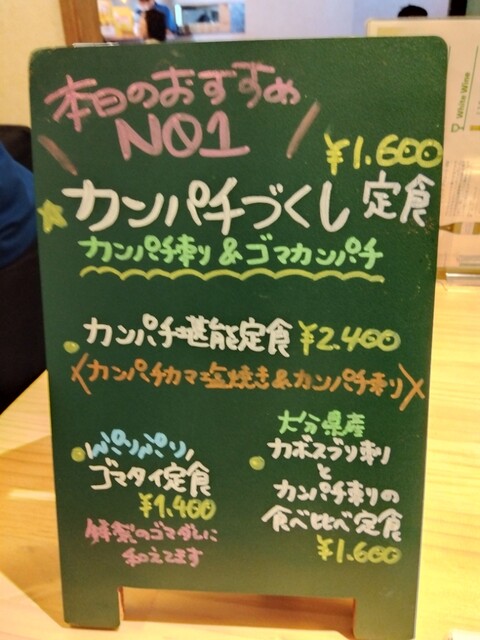 本日のおすすめ
NO1
¥1.600
カンパチづくし定食
カンパチ刺り&ゴマカンパチ
カンパチ堪能定食 ¥2.400
(カンパチカマ塩焼き&カンパチ刺り)
ぷりぷり
ゴマタイ定食
¥1.400
特製のゴマダレに
和えてます
大分県産
カボスブリ刺り
と
カンパチ刺りの
食べ比べ定食
¥1.600
White Wine